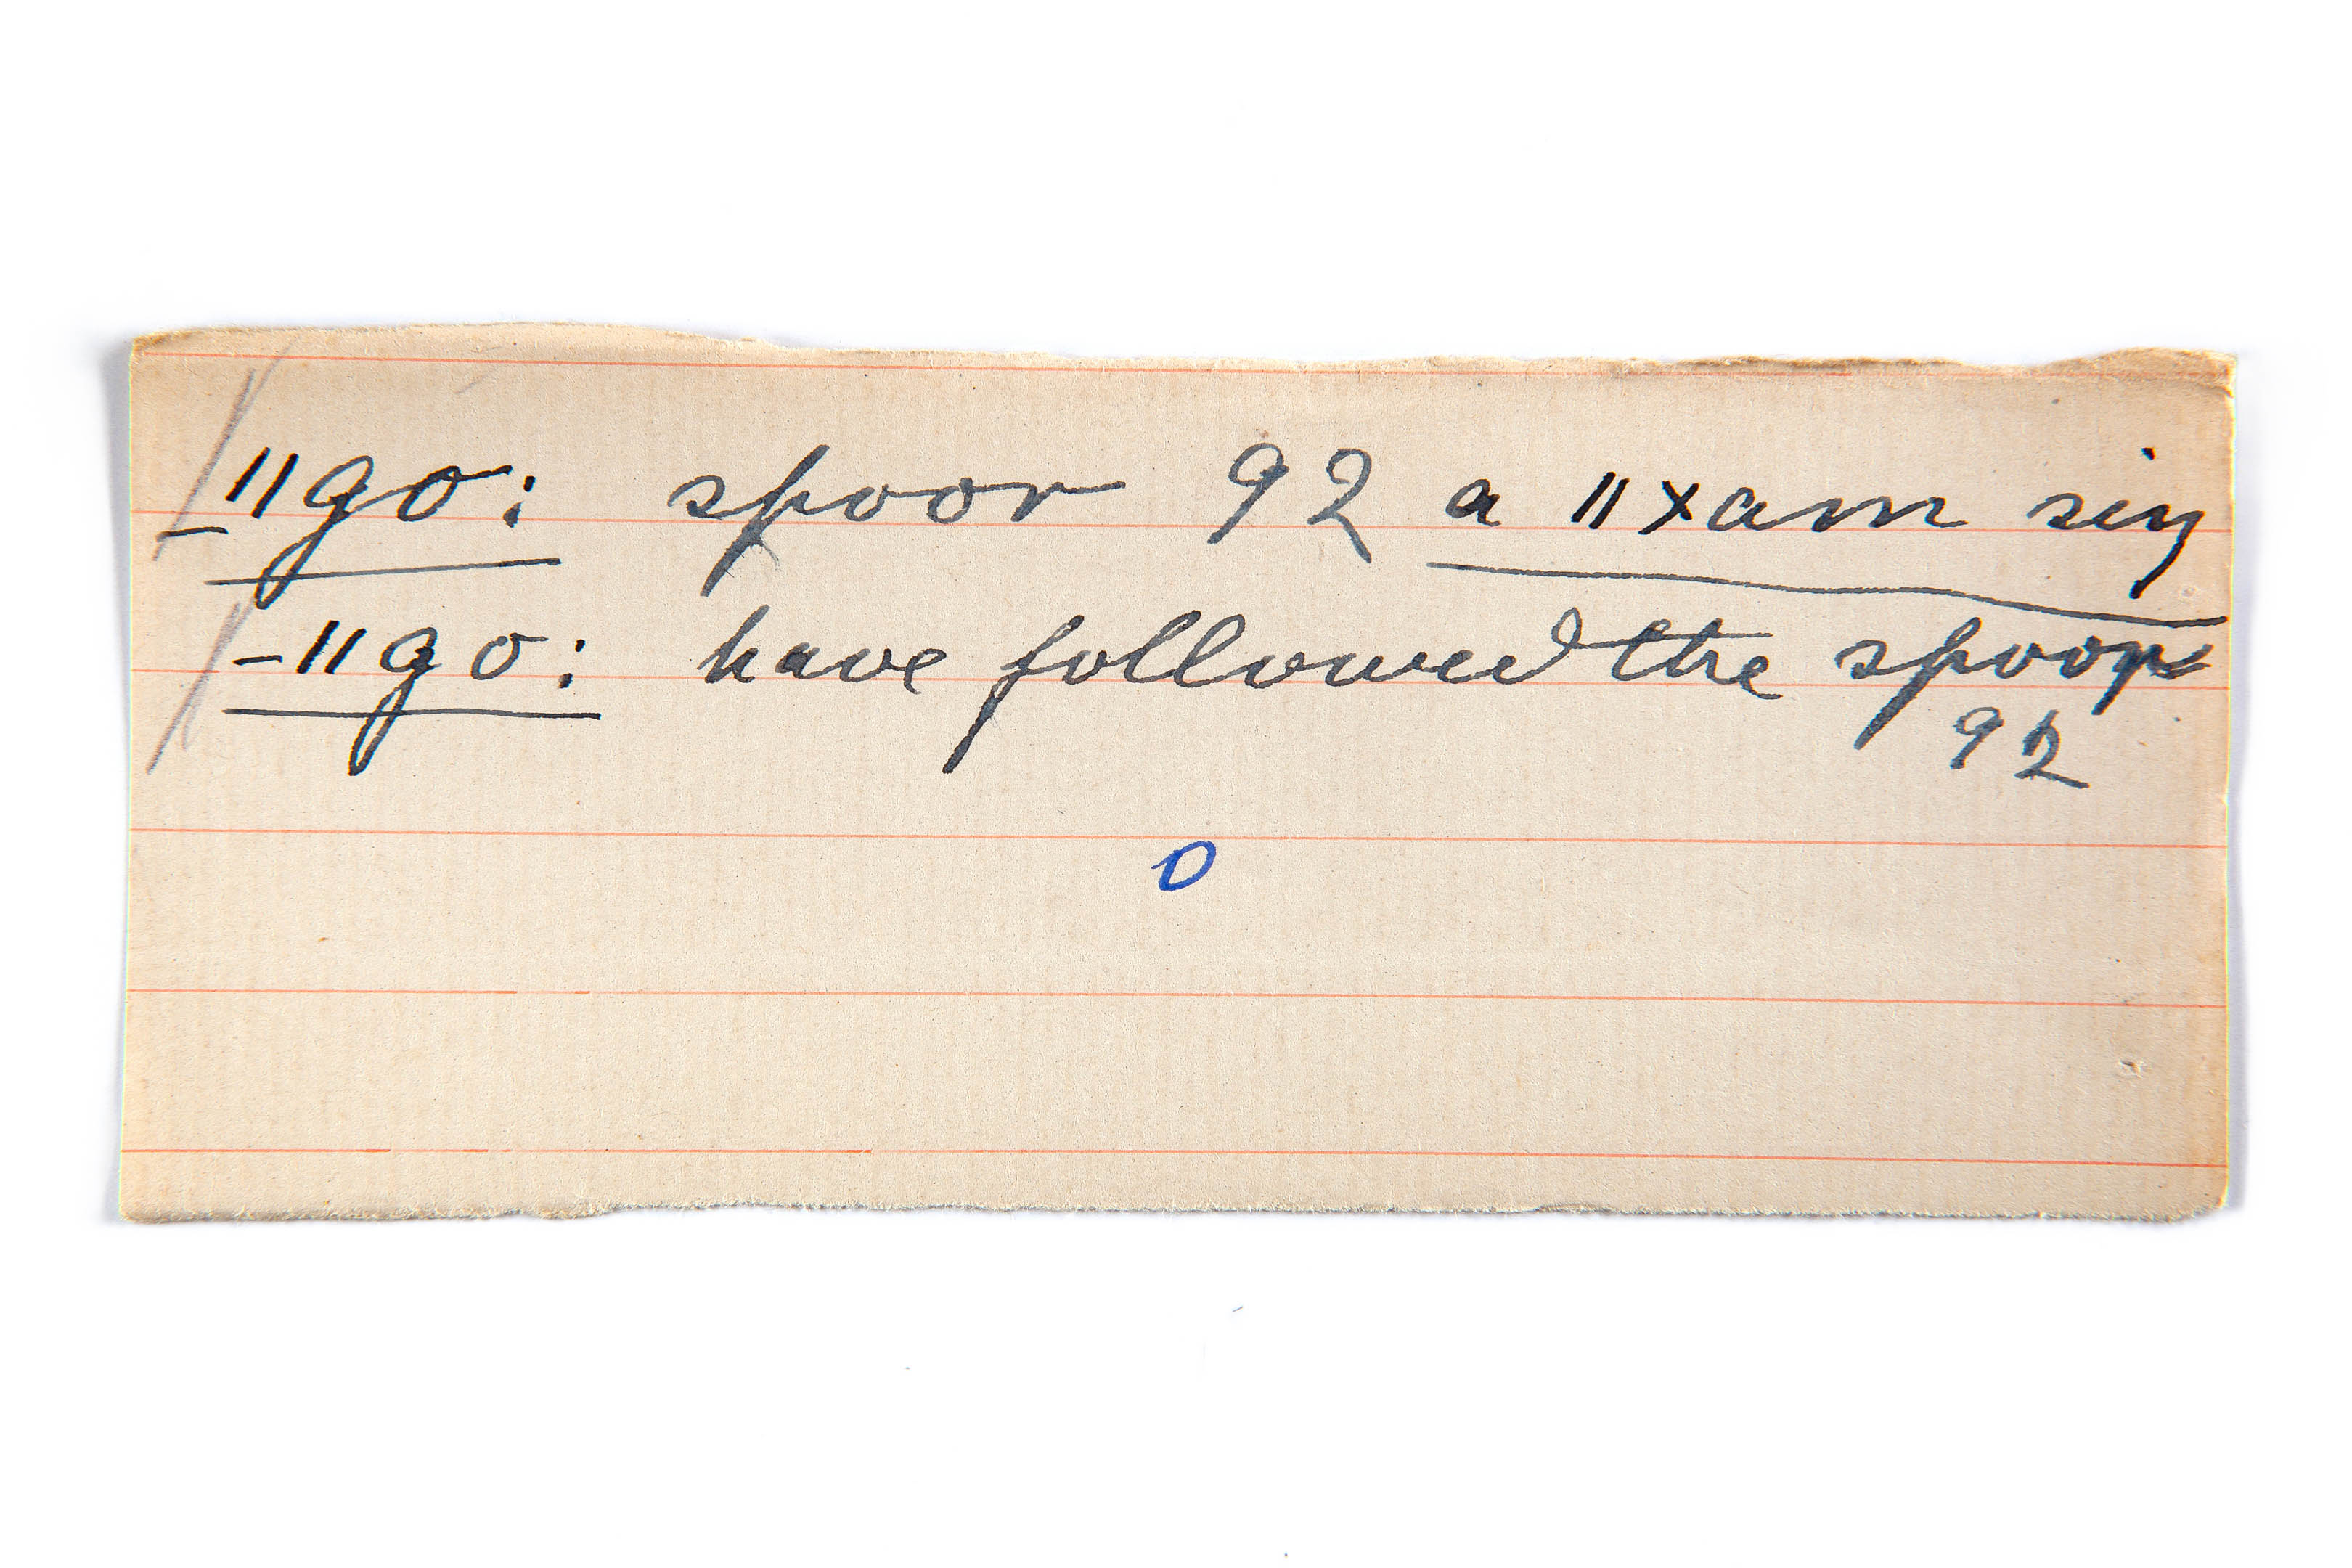 _ ǁgo: spoor 92 a ǁxam siŋ
-ǁgo: have followed the spoor
92
0